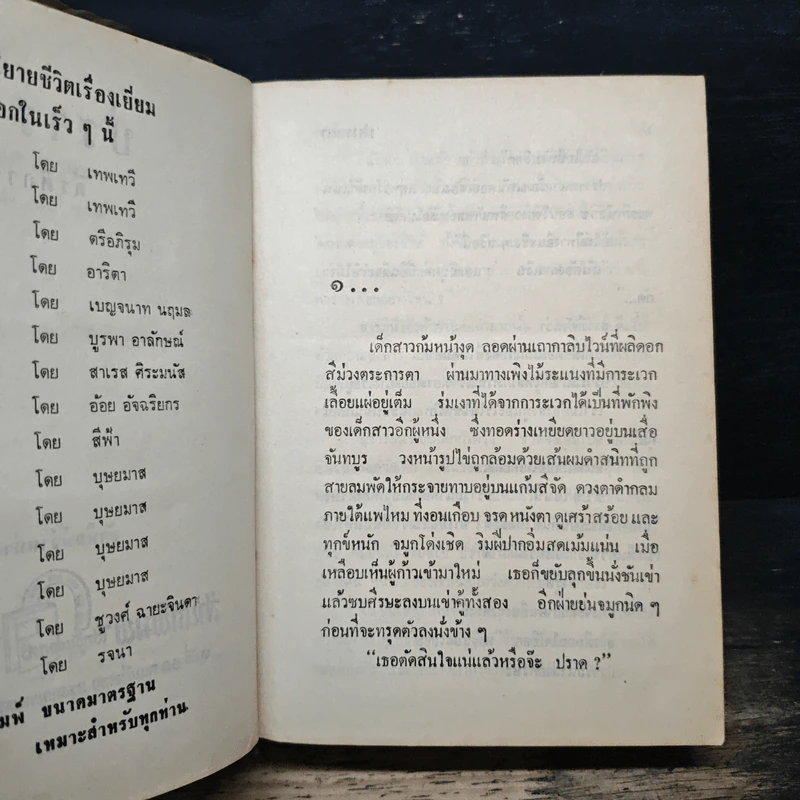 ยายชีวิตเรื่องเยี่ยม
อกในเร็ว ๆ นี้
โดย เทพเทวี
โดย เทพเทวี
โดย ตรีอภิรุม
โดย อาริตา
โดย เบญจนาท นฤมล
โดย บูรพา อาลักษณ์
โดย สาเรส ศิระมนัส
โดย อ้อย อัจฉริยกร
โดย สีฟ้า
โดย บุษยมาส
โดย บุษยมาส
โดย บุษยมาส
โดย บุษยมาส
โดย ชูวงศ์ ฉายะจินดา
โดย รจนา
มพ์ ขนาดมาตรฐาน
เหมาะสำหรับทุกท่าน
๑...
เด็กสาวก้มหน้างุด ลอดผ่านเถากาลิบไวน์ที่ผลิดอก
สีม่วงตระการตา ผ่านมาทางเพิงไม้ระแนงที่มีการะเวก
เลื้อยแผ่อยู่เต็ม ร่มเงาที่ได้จากการะเวกได้เป็นที่พักพิง
ของเด็กสาวอีกผู้หนึ่ง ซึ่งทอดร่างเหยียดยาวอยู่บนเสื่อ
จันทบูร วงหน้ารูปไข่ถูกล้อมด้วยเส้นผมดำสนิทที่ถูก
สายลมพัดให้กระจายทาบอยู่บนแก้มสีจัด ดวงตาดำกลม
ภายใต้แพไหม ที่งอนเกือบ จรด หนังตา ดูเศร้าสร้อย และ
ทุกข์หนัก จมูกโด่งเชิด ริมฝีปากอิ่มสดเม้มแน่น เมื่อ
เหลือบเห็นผู้ก้าวเข้ามาใหม่ เธอก็ขยับลุกขึ้นนั่งชันเข่า
แล้วซบศีรษะลงบนเข่าคู่ทั้งสอง อีกฝ่ายย่นจมูกนิด ๆ
ก่อนที่จะทรุดตัวลงนั่งข้าง ๆ
“เธอตัดสินใจแน่แล้วหรือจ๊ะ ปราด ?”